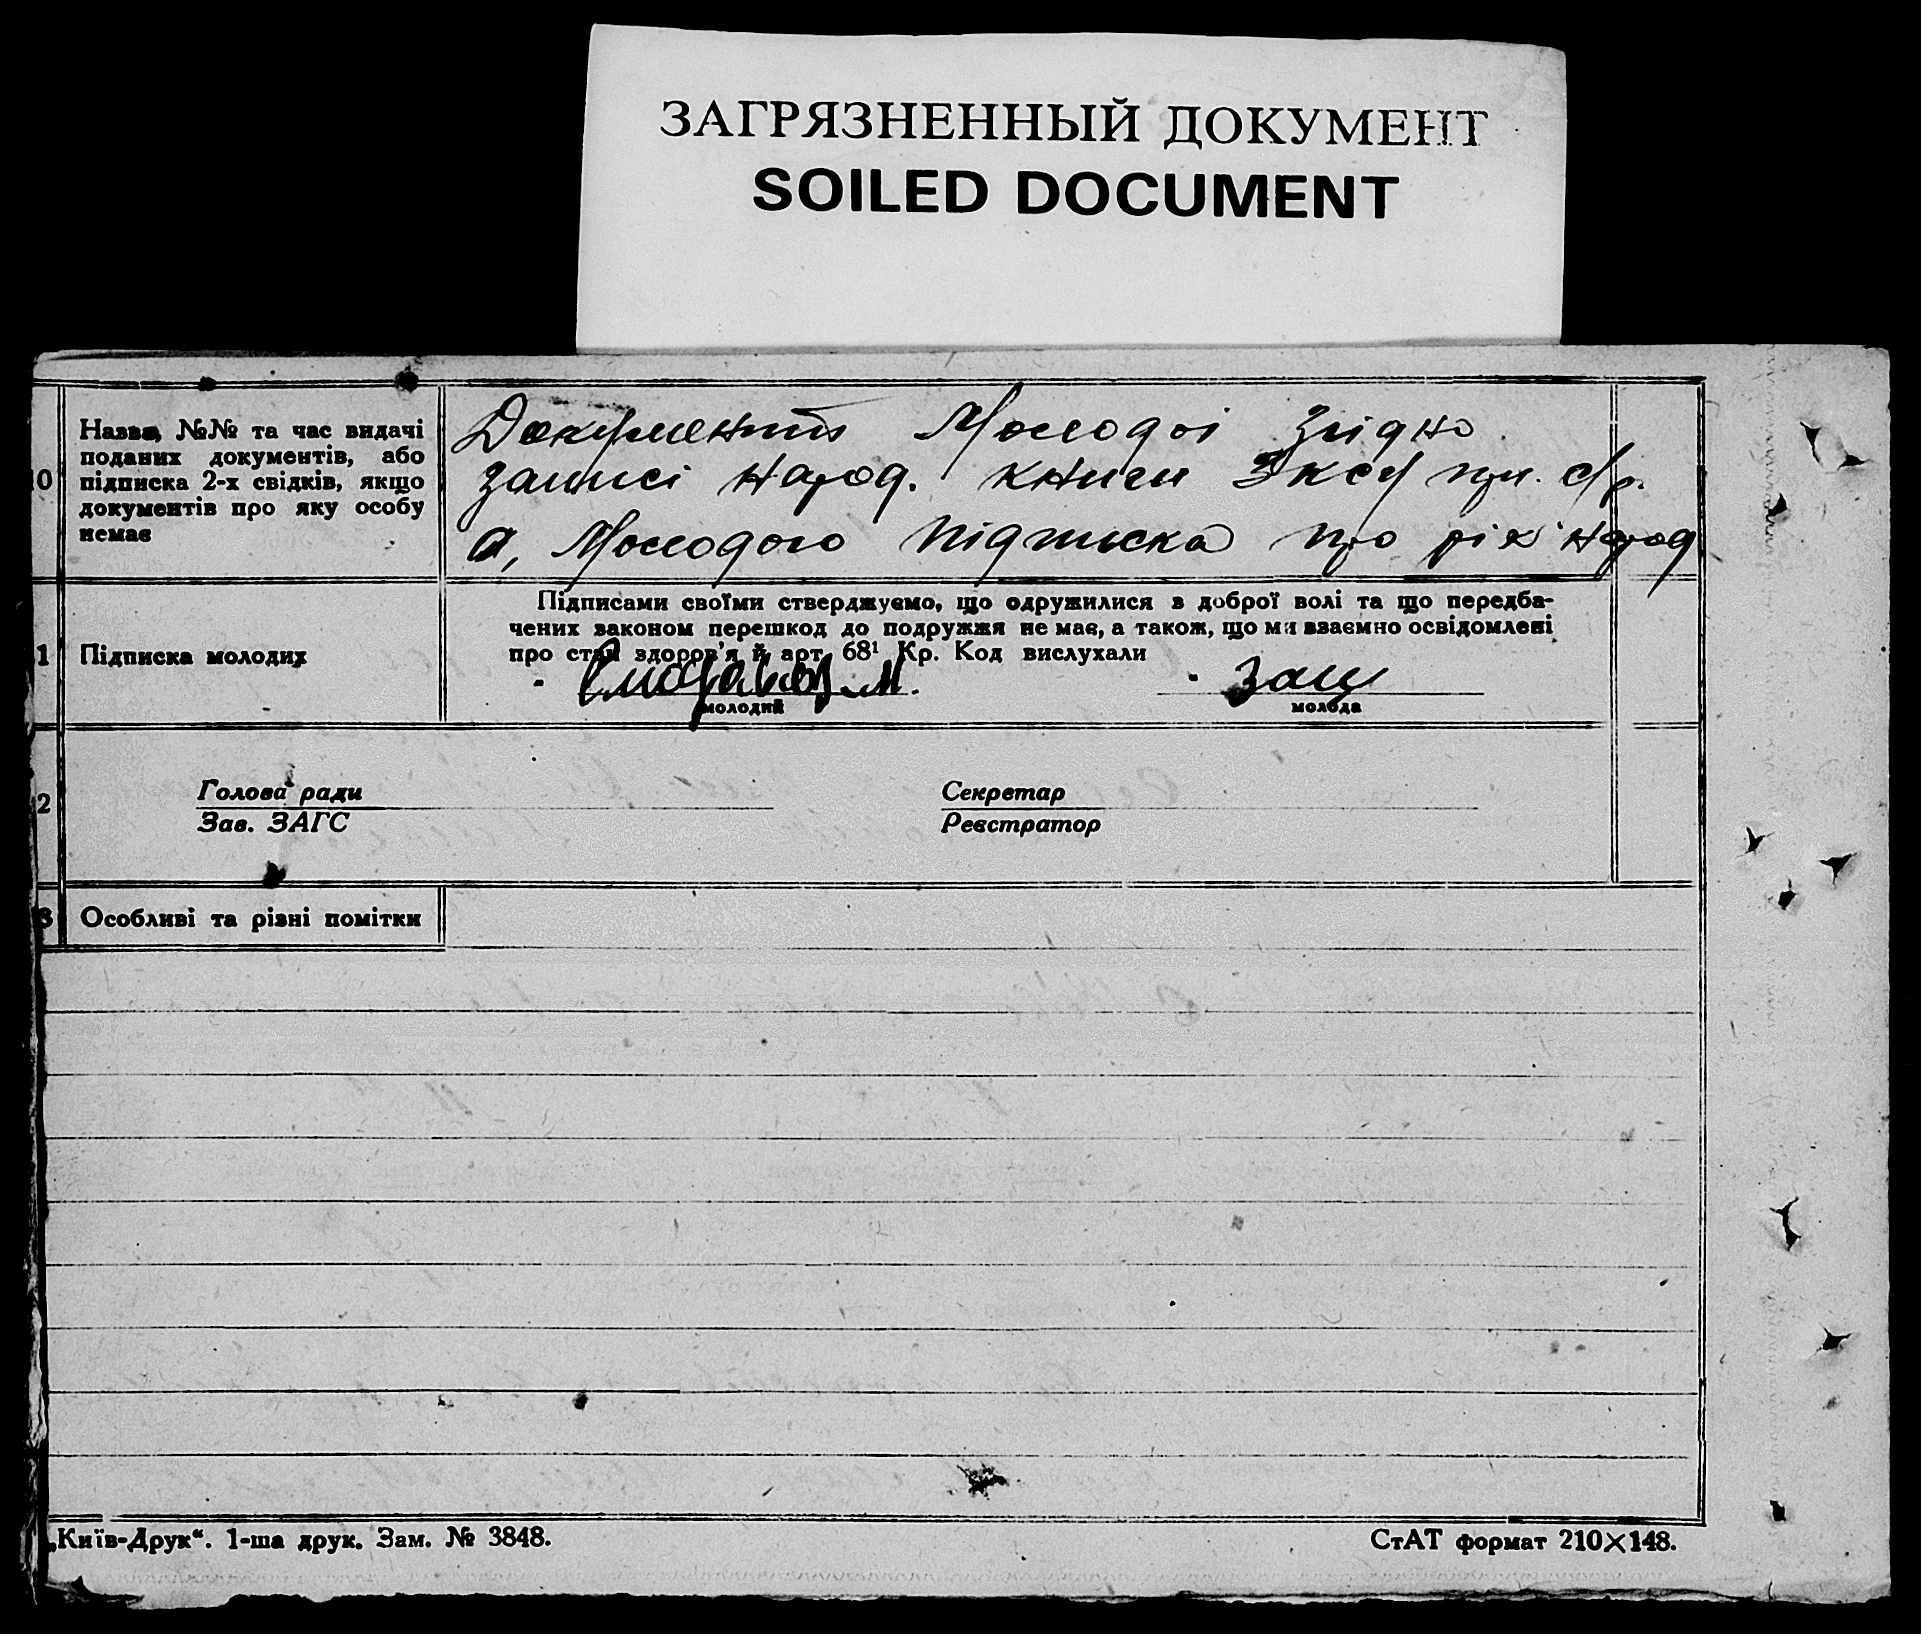 ЗАГРЯЗНЕННЫЙ ДОКУМЕНТ
SOILED DOCUMENT
0
Назва, №№ та час видачі
поданих документів, або
підписка 2-х свідків, якщо
документів про яку особу
немає
Документи Молодої Згідно
записі народ. книги
а, Молодого підписка про рік народ
1
Підписка молодих
Підписами своїми стверджуємо, що одружилися з доброї волі та що передба-
чених законом перешкод до подружжя не має, а також, що ми взаємно освідомлені
про стан здоров'я й арт. 68¹ Кр. Код вислухали
молодий
Защ
молода
2
Голова ради
Зав. ЗАГС
Секретар
Реєстратор
3
Особливі та різні помітки
„Київ-Друк“. 1-ша друк. Зам. № 3848.
СтАТ формат 210×148.